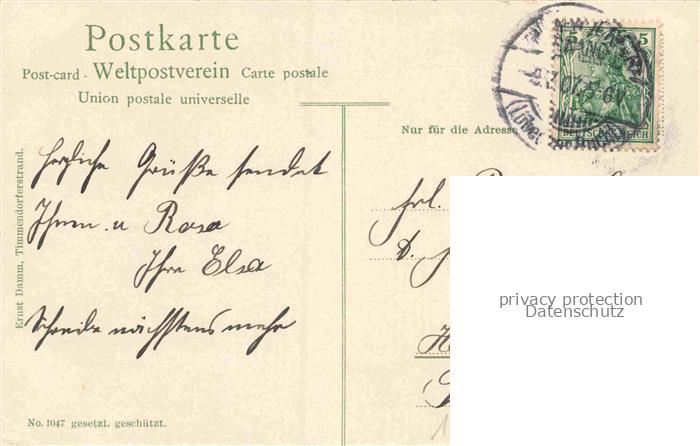 Postkarte
Post-card - Weltpostverein Carte postale
Union postale universelle
Nur für die Adresse
5 5
DEUTSCHES REICH
Herzliche Grüße sendet
Ihnen u. Rosa
Ihre Elsa
Schreibe nächstens mehr
Frl.
D.
Ernst Damm, Timmendorferstrand.
No. 1047 gesetzl. geschützt.
privacy protection
Datenschutz